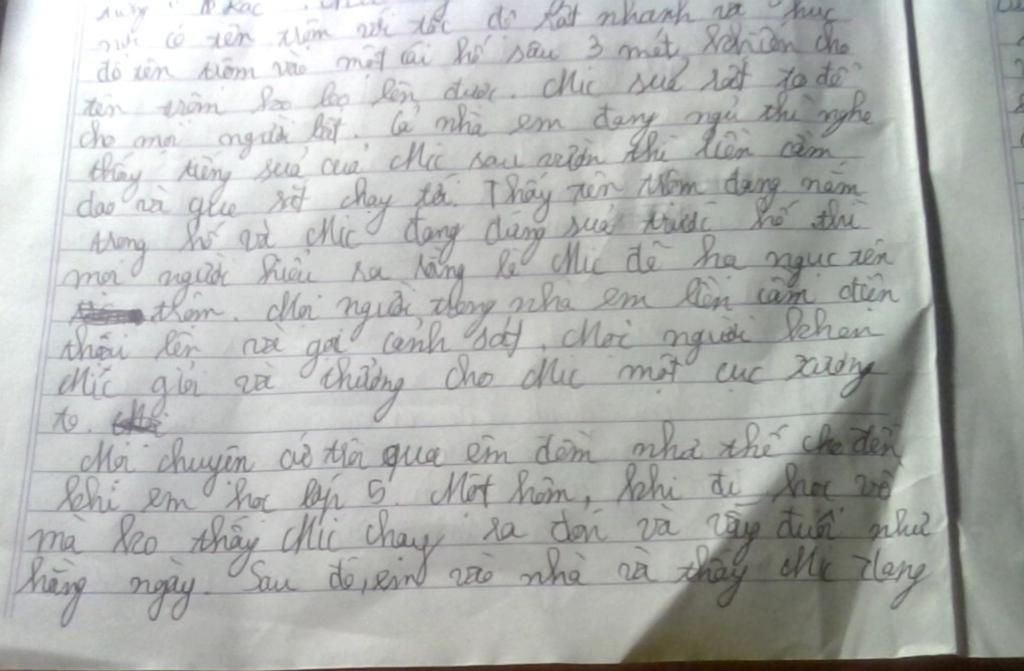 với có tên trộm với tốc độ rất nhanh và húc
đổ tên trộm vào một cái hố sâu 3 mét khiến cho
tên trộm ko leo lên được. Mic suả rất to để
cho mọi người biết. Cả nhà em đang ngủ thì nghe
thấy tiếng suả cuả Mic sau vườn thì liền cầm
dao và gậy rồi chạy tới. Thấy tên trộm đang nằm
trong hố và Mic đang đứng suả trước hố thì
mọi người hiểu ra rằng là Mic đã hạ ngục tên
trộm. Mọi người trong nhà em liền cầm điện
thoại lên và gọi cảnh sát. Mọi người khen
Mic giỏi và thưởng cho Mic một cục xương
to.
Mọi chuyện cứ trôi qua êm đềm như thế cho đến
khi em học lớp 5. Một hôm, khi đi học về
mà ko thấy Mic chạy ra đón và vẫy đuôi như
hằng ngày. Sau đó, em vào nhà và thấy Mic đang